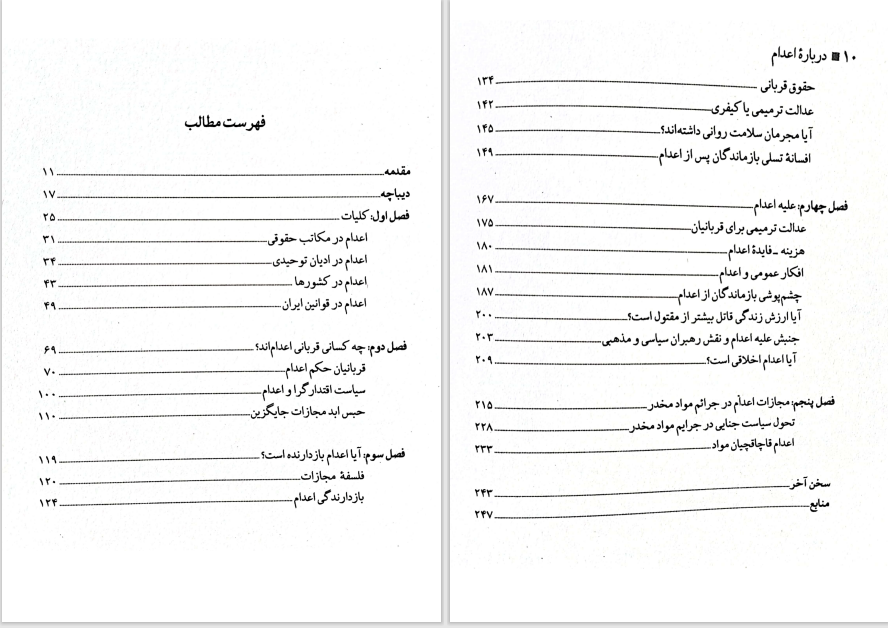 فهرست مطالب
مقدمه ........ ۱۱
دیباچه ........ ۱۷
فصل اول: کلیات ........ ۲۵
اعدام در مکاتب حقوقی ........ ۳۱
اعدام در ادیان توحیدی ........ ۳۴
اعدام در کشورها ........ ۴۳
اعدام در قوانین ایران ........ ۴۹
فصل دوم: چه کسانی قربانی اعدام‌اند؟ ........ ۶۹
قربانیان حکم اعدام ........ ۷۰
سیاست اقتدارگرا و اعدام ........ ۱۰۰
حبس ابد مجازات جایگزین ........ ۱۱۰
فصل سوم: آیا اعدام بازدارنده است؟ ........ ۱۱۹
فلسفهٔ مجازات ........ ۱۲۰
بازدارندگی اعدام ........ ۱۲۴
۱۰ ■ دربارهٔ اعدام
حقوق قربانی ........ ۱۳۴
عدالت ترمیمی یا کیفری ........ ۱۴۲
آیا مجرمان سلامت روانی داشته‌اند؟ ........ ۱۴۵
افسانهٔ تسلی بازماندگان پس از اعدام ........ ۱۴۹
فصل چهارم: علیه اعدام ........ ۱۶۷
عدالت ترمیمی برای قربانیان ........ ۱۷۵
هزینه - فایدهٔ اعدام ........ ۱۸۰
افکار عمومی و اعدام ........ ۱۸۱
چشم‌پوشی بازماندگان از اعدام ........ ۱۸۷
آیا ارزش زندگی قاتل بیشتر از مقتول است؟ ........ ۲۰۰
جنبش علیه اعدام و نقش رهبران سیاسی و مذهبی ........ ۲۰۳
آیا اعدام اخلاقی است؟ ........ ۲۰۹
فصل پنجم: مجازات اعدام در جرائم مواد مخدر ........ ۲۱۵
تحول سیاست جنایی در جرایم مواد مخدر ........ ۲۲۸
اعدام قاچاقچیان مواد ........ ۲۳۳
سخن آخر ........ ۲۴۳
منابع ........ ۲۴۷